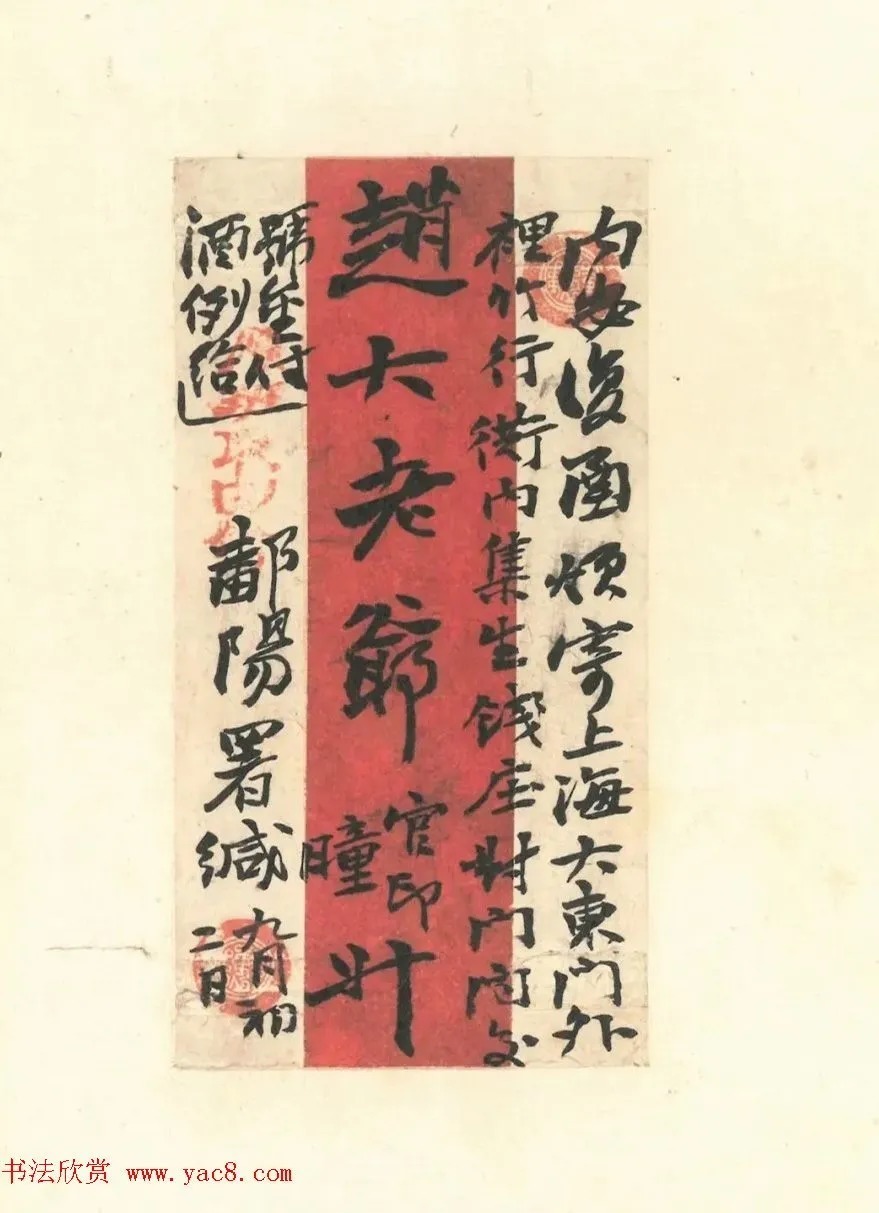 内安復函煩寄上海大東門外
裡竹行衖内集生錢庄對門内交
趙大老爺
官印
瞳
升
號金付
酒例給
鄱陽署緘
九月初
二日
书法欣赏 www.yac8.com